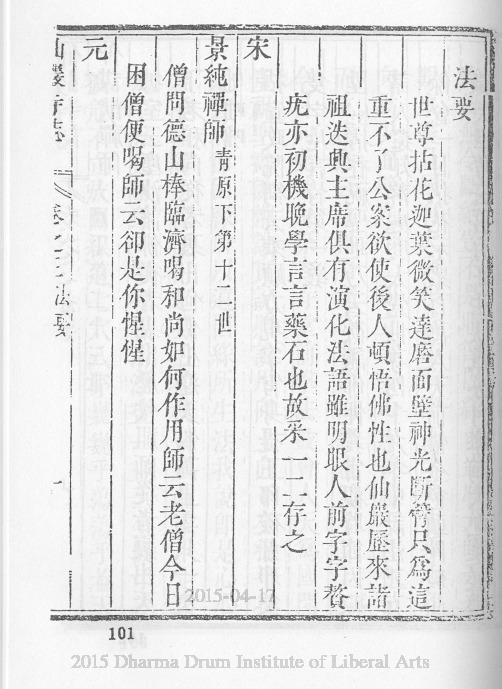 法要
世尊拈花迦葉微笑達磨面壁神光斷臂只爲這
重不了公案欲使後人頓悟佛性也仙巖歷來詣
祖迭興主席俱有演化法語雖明眼人前字字贅
疣亦初機晚學言言藥石也故采一二存之
宋
景純禪師青原下第十二世
僧問德山棒臨濟喝和尚如何作用師云老僧今日
困僧便喝師云卻是你惺惺
元
仙巖寺志 卷之三 法要 一
101
2015-04-17
2015 Dharma Drum Institute of Liberal Arts